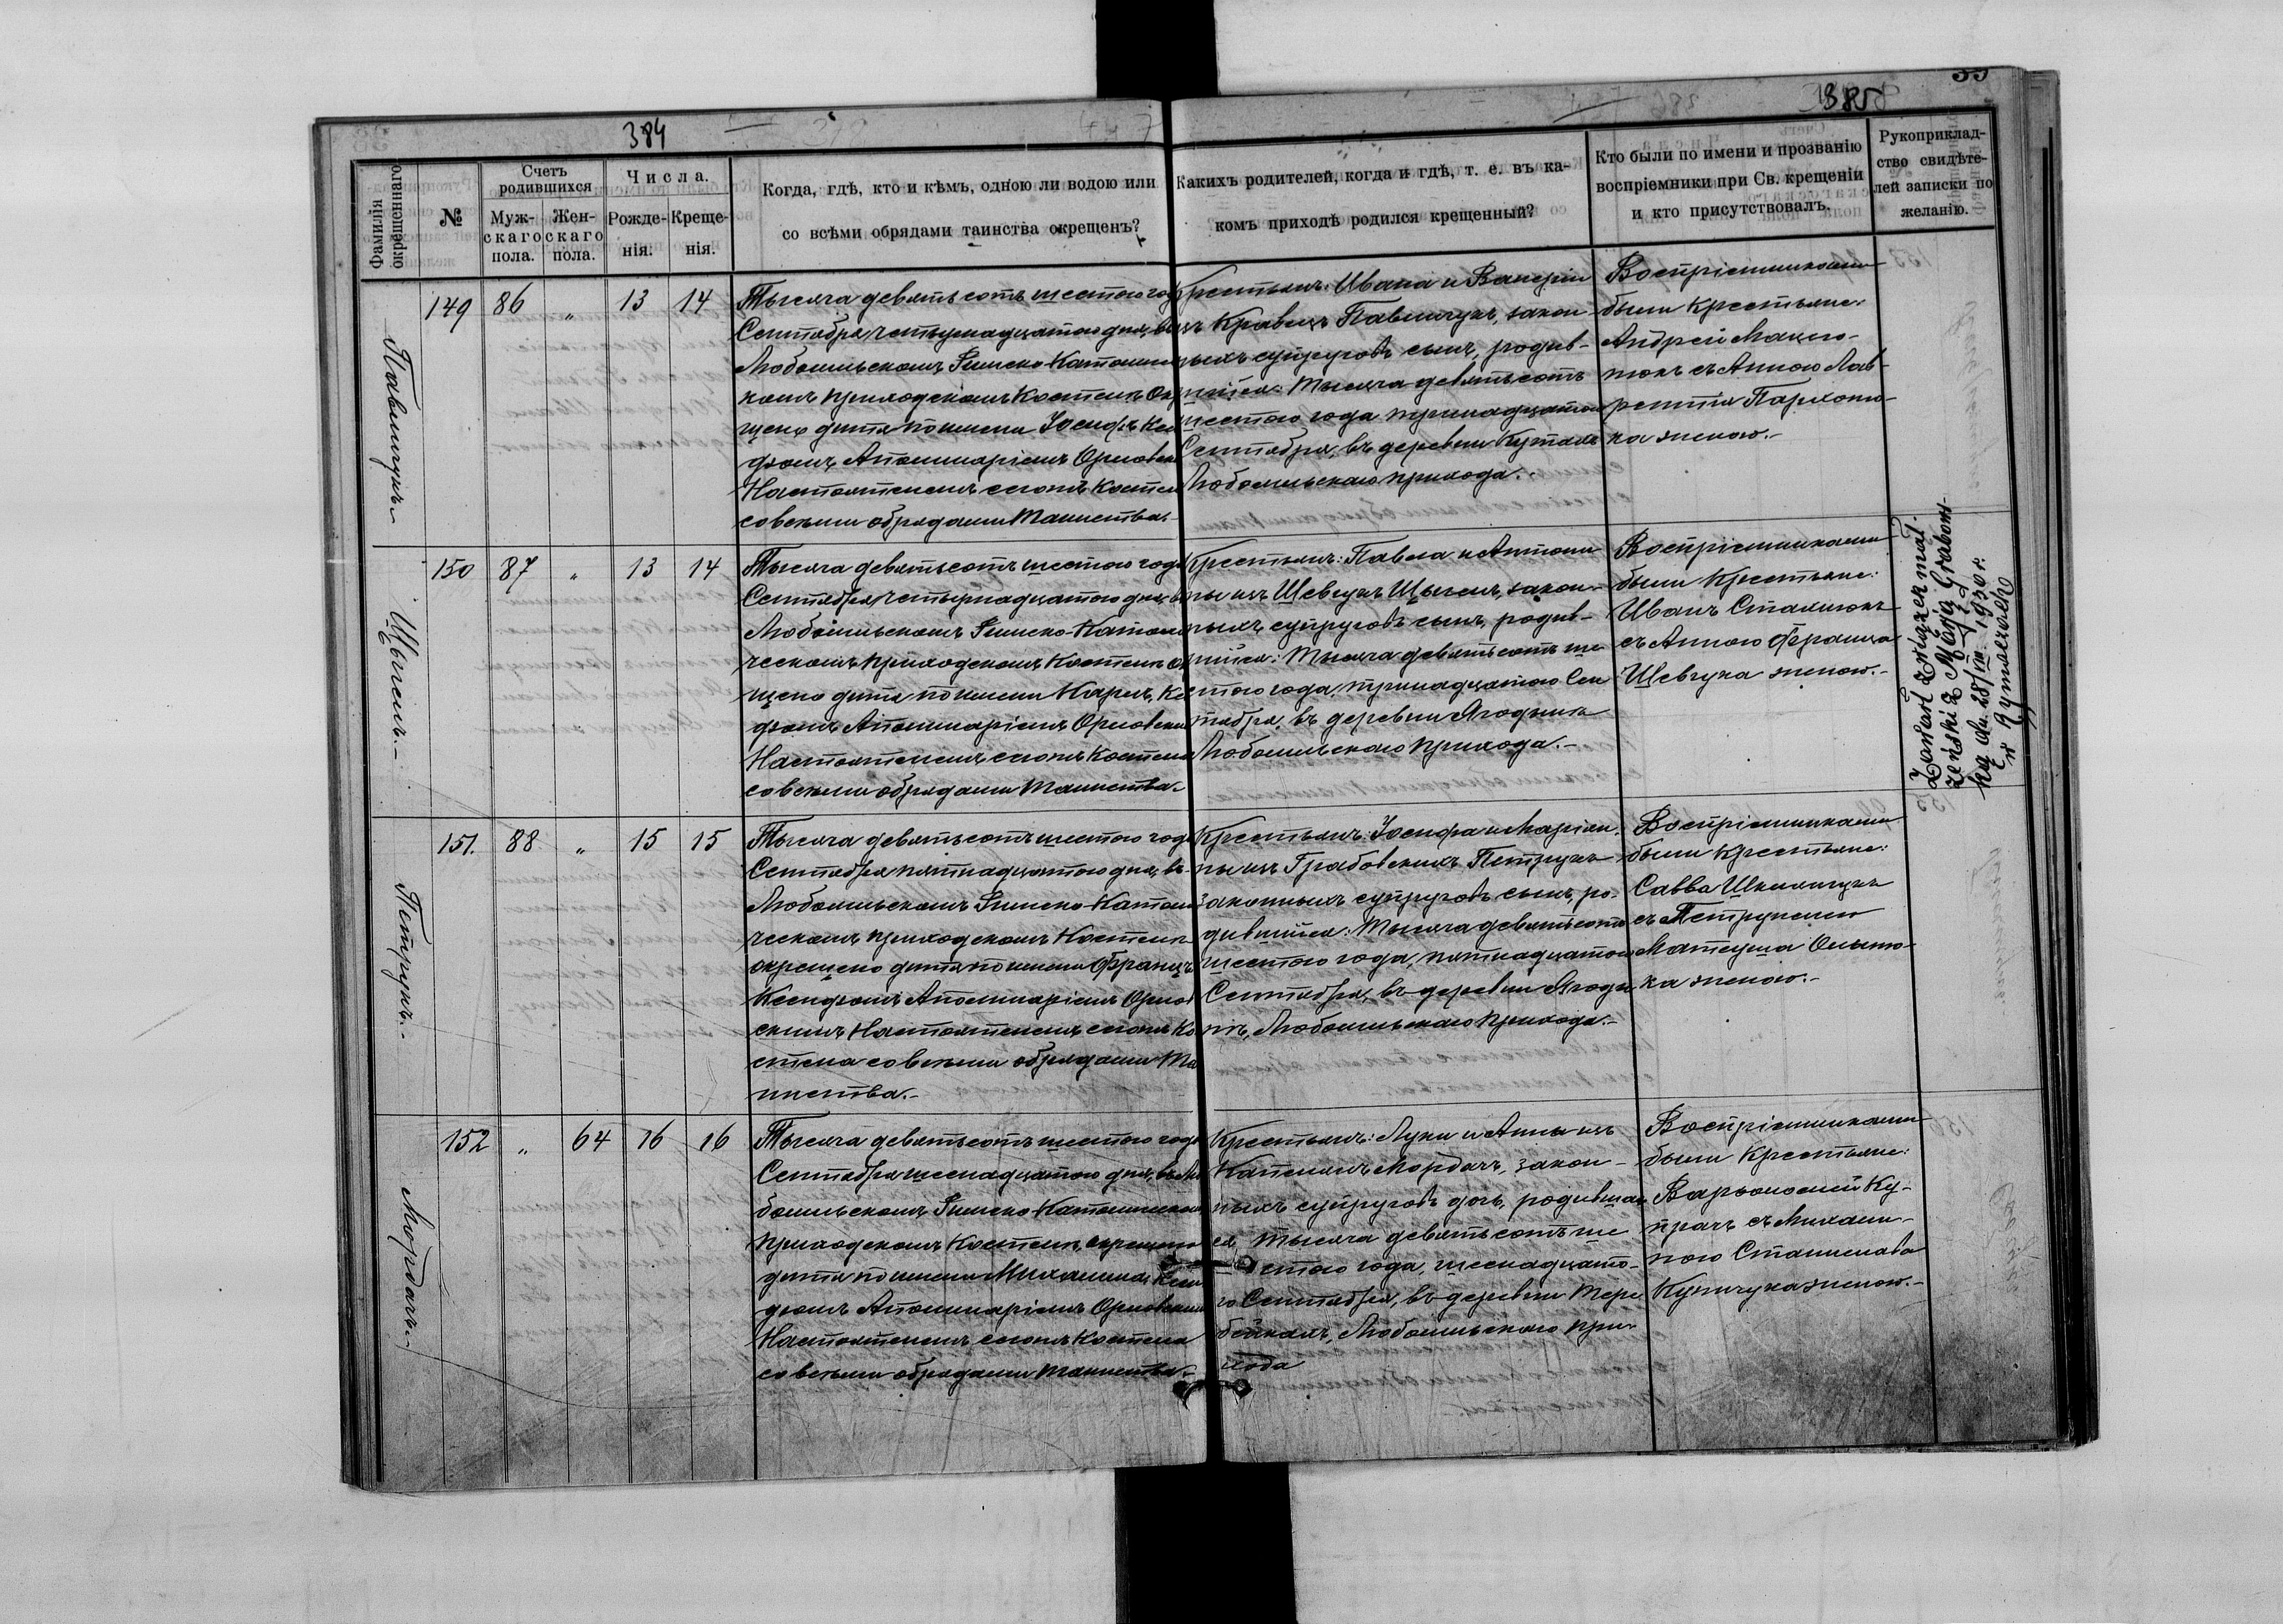 384
385
Фамилія окрещеннаго.
№
Счетъ родившихся
Мужскаго пола.
Женскаго пола.
Числа.
Рожденія.
Крещенія.
Когда, гдѣ, кто и кѣмъ, одною ли водою или
со всѣми обрядами таинства окрещенъ?
Какихъ родителей, когда и гдѣ, т. е. въ ка-
комъ приходѣ родился крещенный?
Кто были по имени и прозванію
воспріемники при Св. крещеніи
и кто присутствовалъ.
Рукоприклад-
ство свидѣте-
лей записки по
желанію.
Павлищукъ
149 86 „ 13 14
Тысяча девятьсотъ шестого года
Сентября четырнадцатого дня, въ
Любомльскомъ Римско-Католичес
комъ приходскомъ Костелѣ окр
щено дитя по имени Іосифъ Ксе
дзомъ Аполинаріемъ Орловским
Настоятелемъ сегожъ Костела
со всѣми обрядами Таинства.
Крестьянъ: Ивана и Валеріи
изъ Кравецъ Павлищукъ, закон-
ныхъ супруговъ сынъ, родив-
шійся: Тысяча девятьсотъ
шестого года тринадцатого
Сентября, въ деревни
Любомльскаго прихода.
Воспріемниками
были Крестьяне:
Андрей
съ Анною Лав-
рентія
ка женою.-
Щыгелъ.
150 87 „ 13 14
Тысяча девятьсотъ шестого года
Сентября четырнадцатого дня, в
Любомльскомъ Римско-Католи
ческомъ приходскомъ Костелѣ окр
щено дитя по имени Карлъ, Кс
дзомъ Аполинаріемъ Орловским
Настоятелемъ сегожъ Костела
со всѣми обрядами Таинства.
Крестьянъ: Павла и Антони
ны изъ Шевчукъ Щыгелъ, закон-
ныхъ супруговъ сынъ, родив-
шійся: Тысяча девятьсотъ ше
стого года, тринадцатого Сен
тября, въ деревни Ягодынѣ
Любомльскаго прихода.-
Воспріемниками
были Крестьяне:
Иванъ Сталинокъ
съ Анною Франца
Шевчука женою.-
Zawarł związek mał-
żeński z Marją Grabows-
ką dn. 28/VIII. 1930 r.
w Rymaczach
Петрукъ.
151. 88 „ 15 15
Тысяча девятьсотъ шестого года
Сентября пятнадцатого дня, въ
Любомльскомъ Римско-Католи
ческомъ приходскомъ Костелѣ
окрещено дитя по имени Францъ
Ксендзомъ Аполинаріемъ Орлов
скимъ Настоятелемъ сегожъ Ко
стела со всѣми обрядами Та
инства.-
Крестьянъ: Іосифа и Маріан
ны изъ Грабовскихъ Петрукъ
законныхъ супруговъ сынъ, ро-
дившійся: Тысяча девятьсотъ
шестого года, пятнадцатого
Сентября, въ деревни Ягоды
нѣ, Любомльскаго прихода.-
Воспріемниками
были Крестьяне:
Савва Шкилищукъ
съ Петрунелею
Матеуша
ка женою.-
Мордачъ.
152 „ 64 16 16
Тысяча девятьсотъ шестого года
Сентября шеснадцатого дня, въ Лю
бомльскомъ Римско-Католическом
приходскомъ Костелѣ, окрещено
дитя по имени Михалина, Ксен
дзомъ Аполинаріемъ Орловским
Настоятелемъ сегожъ Костела
со всѣми обрядами Таинства.
Крестьянъ: Луки и Анны изъ
Мордачъ, закон-
ныхъ супруговъ дочь, родившая
ся, тысяча девятьсотъ ше
стого года, шеснадцато-
го Сентября, въ деревни Тере
бейкахъ, Любомльскаго при
хода
Воспріемниками
были Крестьяне:
Варфоломей Ку-
прачъ съ Михали-
ною Станислава
женою.-